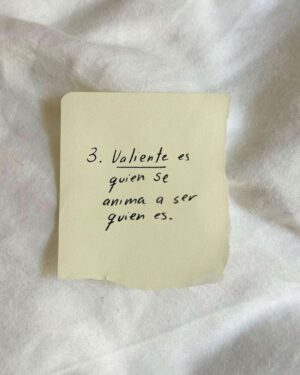 3. Valiente es
quien se
anima a ser
quien es.